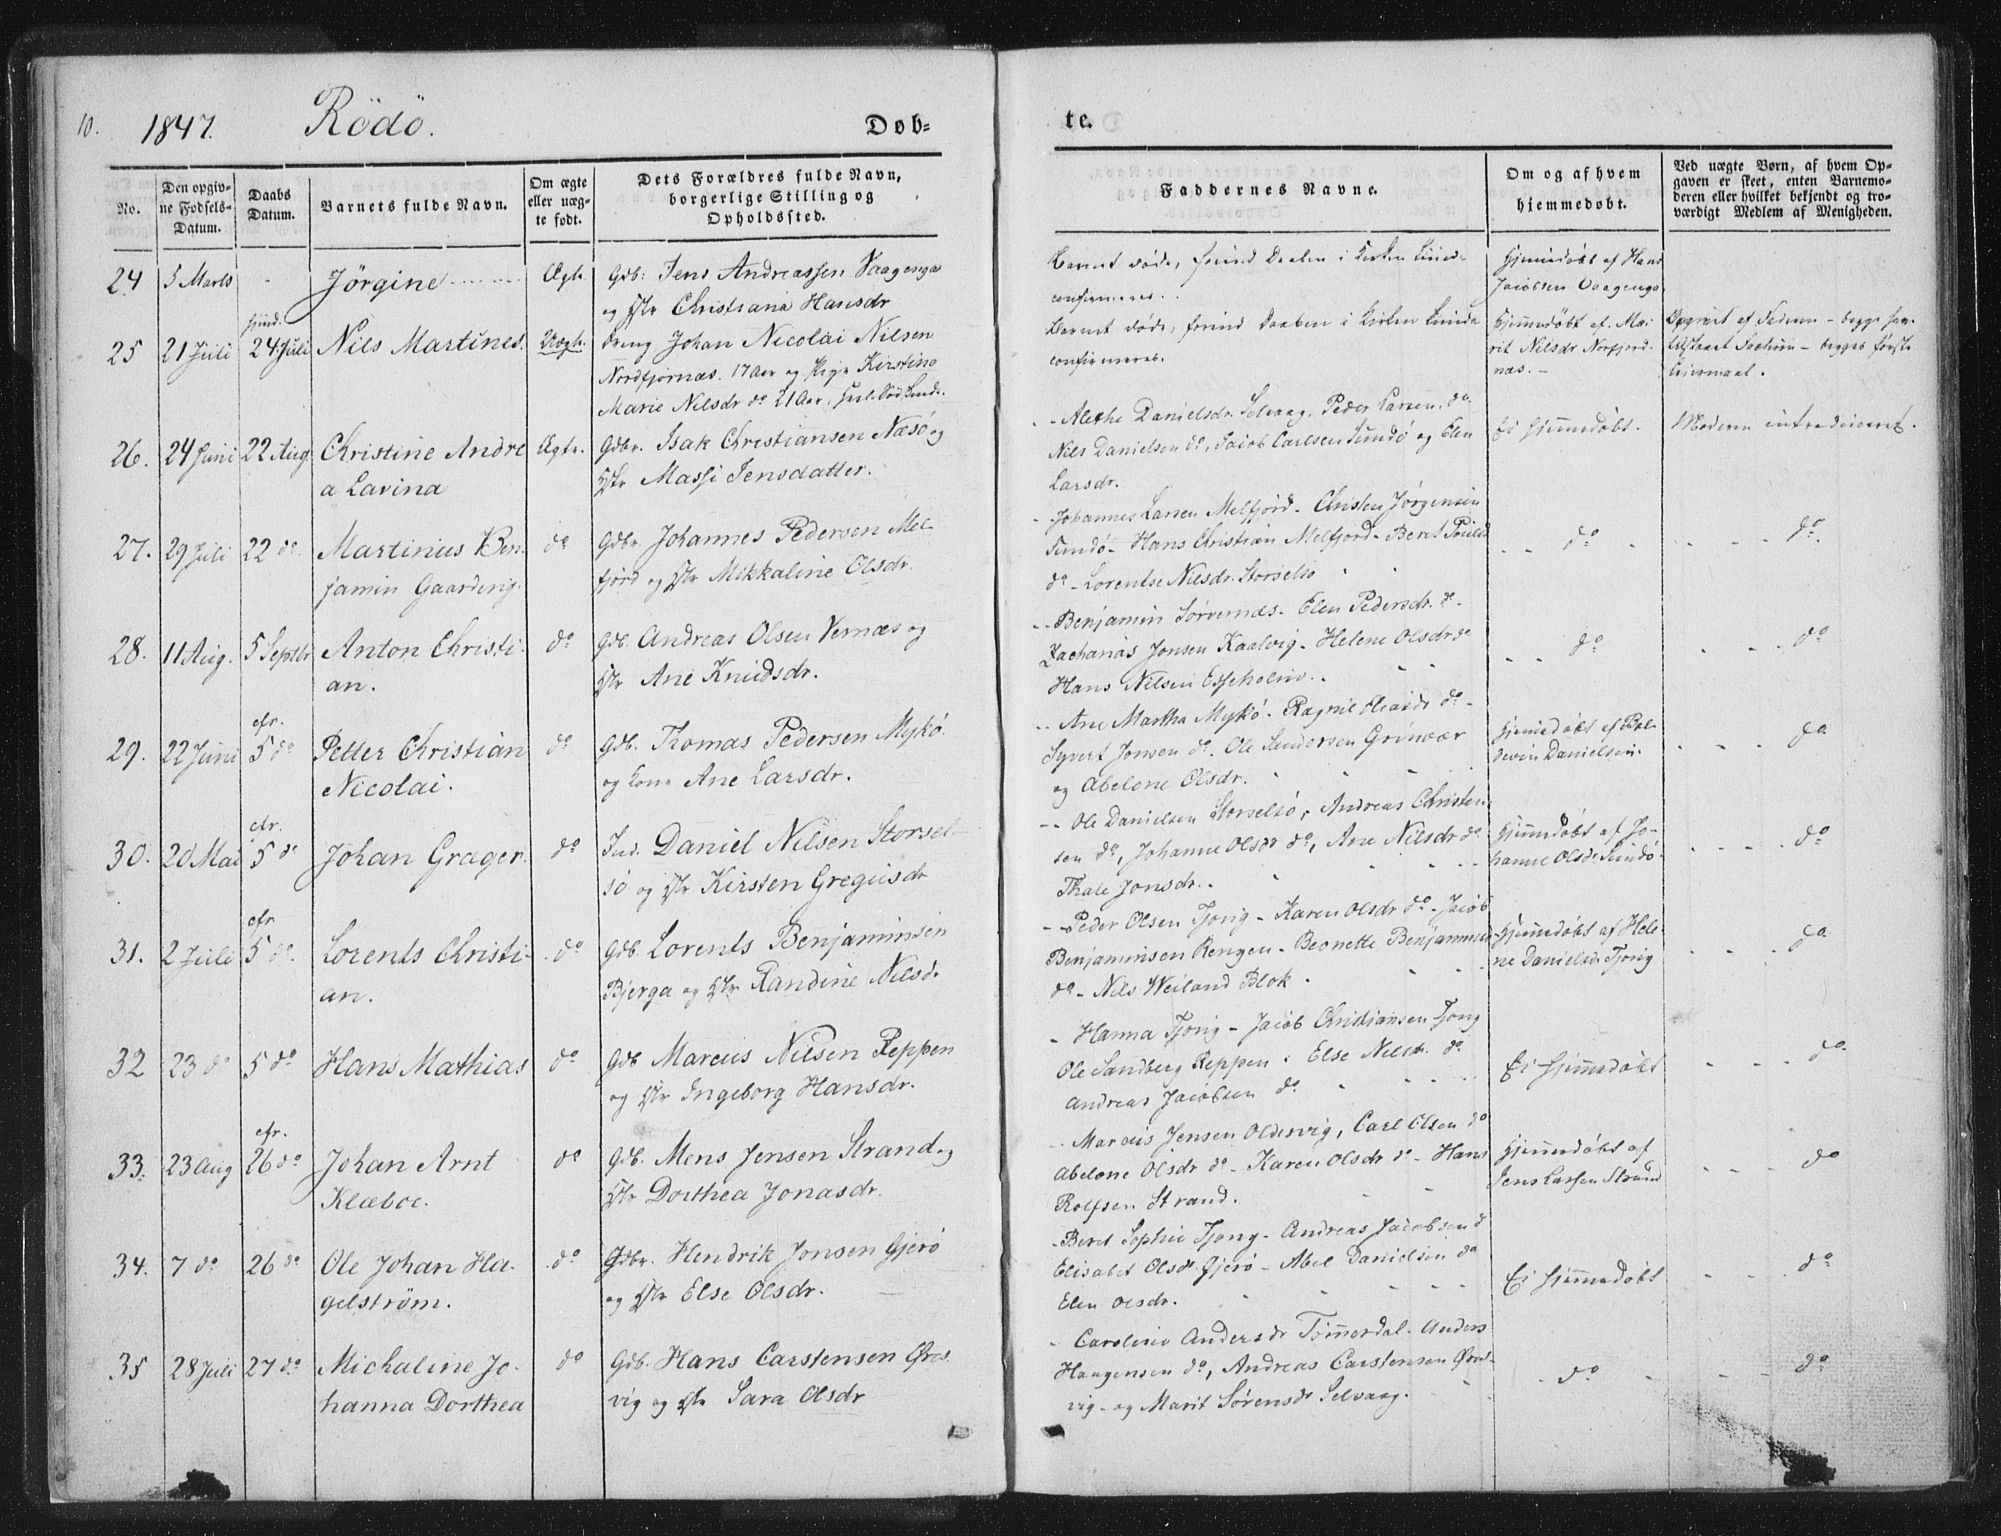 10.
1847.
Rödö.
Døb=
te.
No.
Den opgiv-
ne Fødsels-
Datum.
Daabs
Datum.
Barnets fulde Navn.
Om ægte
eller uæg-
te født.
Dets Forældres fulde Navn,
borgerlige Stilling og
Opholdssted.
Faddernes Navne.
Om og af hvem
hjemmedøbt.
Ved uægte Børn, af hvem Op-
gaven er skeet, enten Barnemo-
deren eller hvilket bekjendt og tro-
værdigt Medlem af Menigheden.
24
5 Marts
-
Jörgine
Ægte
Gdb: Jens Andreassen Vaagenga
og Christiana Hansdr
Barnet døde, forind Daaben i Kirken kunde
confirmeres.
Hjemmedöbt af Hans
Jacobsen Vaagenga
25
21 Juli
24 Juli
Nils Martines.
Uægte.
Dreng Johan Nicolai Nilsen
Nordfjornæs. 17 Aar og Pige Kirstina
Marie Nilsdr do 21 Aar,
Barnet døde, forind Daaben i Kirken kunde
confirmeres.
Hjemmedöbt af Ma-
rit Nilsdr Norfjord-
næs. -
Opgivet af Faderen - begge
- begges første
Leiermaal.
26.
24 Juni
22 Aug
Christine Andre
a Lavina
Ægte.
Gdbr. Isak Christiansen Næsø og
Massi Jensdatter.
Alethe Danielsdr. Selvaag, Peder Larsen, do
Nils Danielsen do, Jacob Carlsen Sundö og Elen
Larsdr.
Ei hjemmedöbt.
Moderen introduceret.
27.
29 Juli
22 do
Martinus Ben-
jamin Gaarding.
do
Gdbr. Johannes Pedersen Mel-
fjörd og Mikkaline Olsdr.
Johannes Larsen Melfjörd - Christen Jørgensen
Sundö - Hans Christian Melfjord - Beret
do - Lorentse Nilsdr. Storselsö
do
do.
28.
11 Aug.
5 Septbr
Anton Christi-
an.
do
Gdb. Andreas Olsen Værnæs og
Ane Knudsdr.
Benjamin Sörværnæs - Elen Pedersdr. do-
Zacharias Jonsen Kaalvig - Helene Olsdr do
Hans Nilsen Esseholm.
do
do
29.
22 Juni
cfr.
5 do
Petter Christian
Nicolai.
do
Gdb. Thomas Pedersen Mykö
og Kone Ane Larsdr.
Ane Martha Mykö - Ragnil do -
Syvert Jonsen do. Ole Sandersen Grönaar
og Abelone Olsdr.
Hjemmedöbt af Bal-
devin Danielsen.
do
30.
20 Mai
cfr.
5 do
Johan Græger.
do
Ind. Daniel Nilsen Storsel-
sö og Kirsten Gregusdr
Ole Danielsen Storselsö, Andreas Christen-
sen do, Johanne Olsdr do, Ane Nilsdr do
Thale Jonsdr.
hjemmedöbt af Jo-
hanne Olsdr Sundö
do
31.
2 Juli
cfr
5 do
Lorents Christi-
an.
do
Gdb. Lorents Benjaminsen
Bjerga og Randine Nilsd.
Peder Olsen Tjong - Karen Olsdr do - Jacob
Benjaminsen Rengen - Beonette Benjaminsd
do - Nils Weiland Blok.
hjemmedöbt af Hele-
ne Danielsd. Tjong
do
32
23 do
5 do
Hans Mathias
do
Gdb Marcus Nilsen Reppen
og Ingeborg Hansdr.
Hanna Tjong - Jacob Christiansen Tjong
Ole Sandberg Reppen : Else Nilsdr. do
Andreas Jacobsen do
Ei hjemmedöbt
do
33.
23 Aug
cfr.
26 do
Johan Arnt
Klæboe.
do
Gdb. Mens Jensen Strand og
Dorthea Jonasdr.
Marcus Jensen Oldervig, Carl Olsen do
Abelone Olsdr do - Karen Olsdr do - Hans
Rolfsen Strand.
hjemmedöbt af
Jens Larsen Strand
do
34.
7 do
26 do
Ole Johan Ha-
gelström.
do
Gdbr. Hendrik Jonsen Gjerö
og Else Olsdr.
Beret Sophie Tjong - Andreas Jacobsen do
Elisabet Olsdr. Gjerö - Abel Danielsen do
Elen Olsdr.
Ei hjemmedöbt
do
35
28 Juli
27 do
Michaline Jo-
hanna Dorthea
do
Gdb. Hans Carstensen Øres-
vig og Sara Olsdr
Caroline Andersdr Tømmerdal - Anders
Haagensen do, Andreas Carstensen Øres-
vig - og Marit Sørensdr Selvaag.
do
do